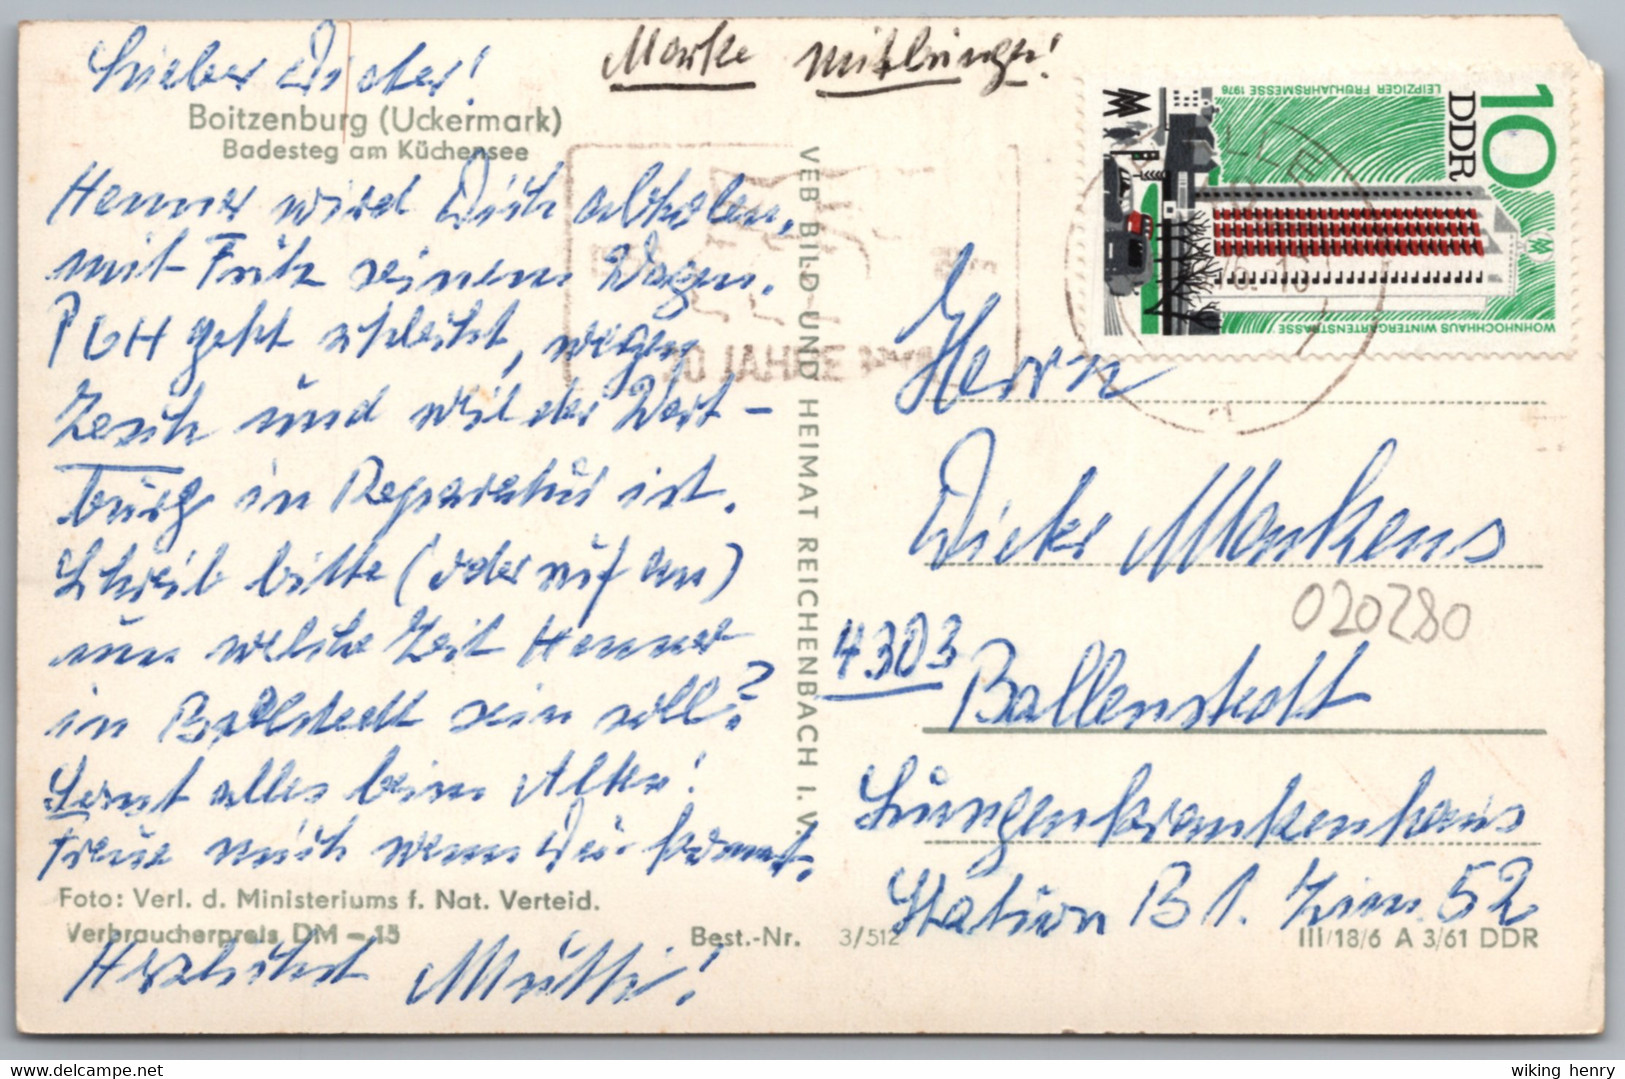 Lieber Dieter!
Marke mitbringen!
Boitzenburg (Uckermark)
Badesteg am Küchensee
Henner wird Dich abholen,
mit Fritz seinem Wagen.
PGH geht schlecht, wegen
Zeich und weil der Wart-
burg in Reparatur ist.
Schreib bitte (oder ruf an)
um welche Zeit Henner
in Ballstedt sein soll?
Sonst alles beim Alten!
Freue mich wenn Du kommst.
Foto: Verl. d. Ministeriums f. Nat. Verteid.
Verbraucherpreis DM -,15
Herzlichst Mutti!
Best.-Nr. 3/512
VEB BILD UND HEIMAT REICHENBACH I. V.
20 JAHRE
10
DDR
LEIPZIGER FRÜHJAHRSMESSE 1976
WOHNHOCHHAUS WINTERGARTENSTRASSE
Herrn
Dieter Markens
020280
4303 Ballenstedt
Lungenkrankenhaus
Station B 1. Zim. 52
III/18/6 A 3/61 DDR
wiking henry